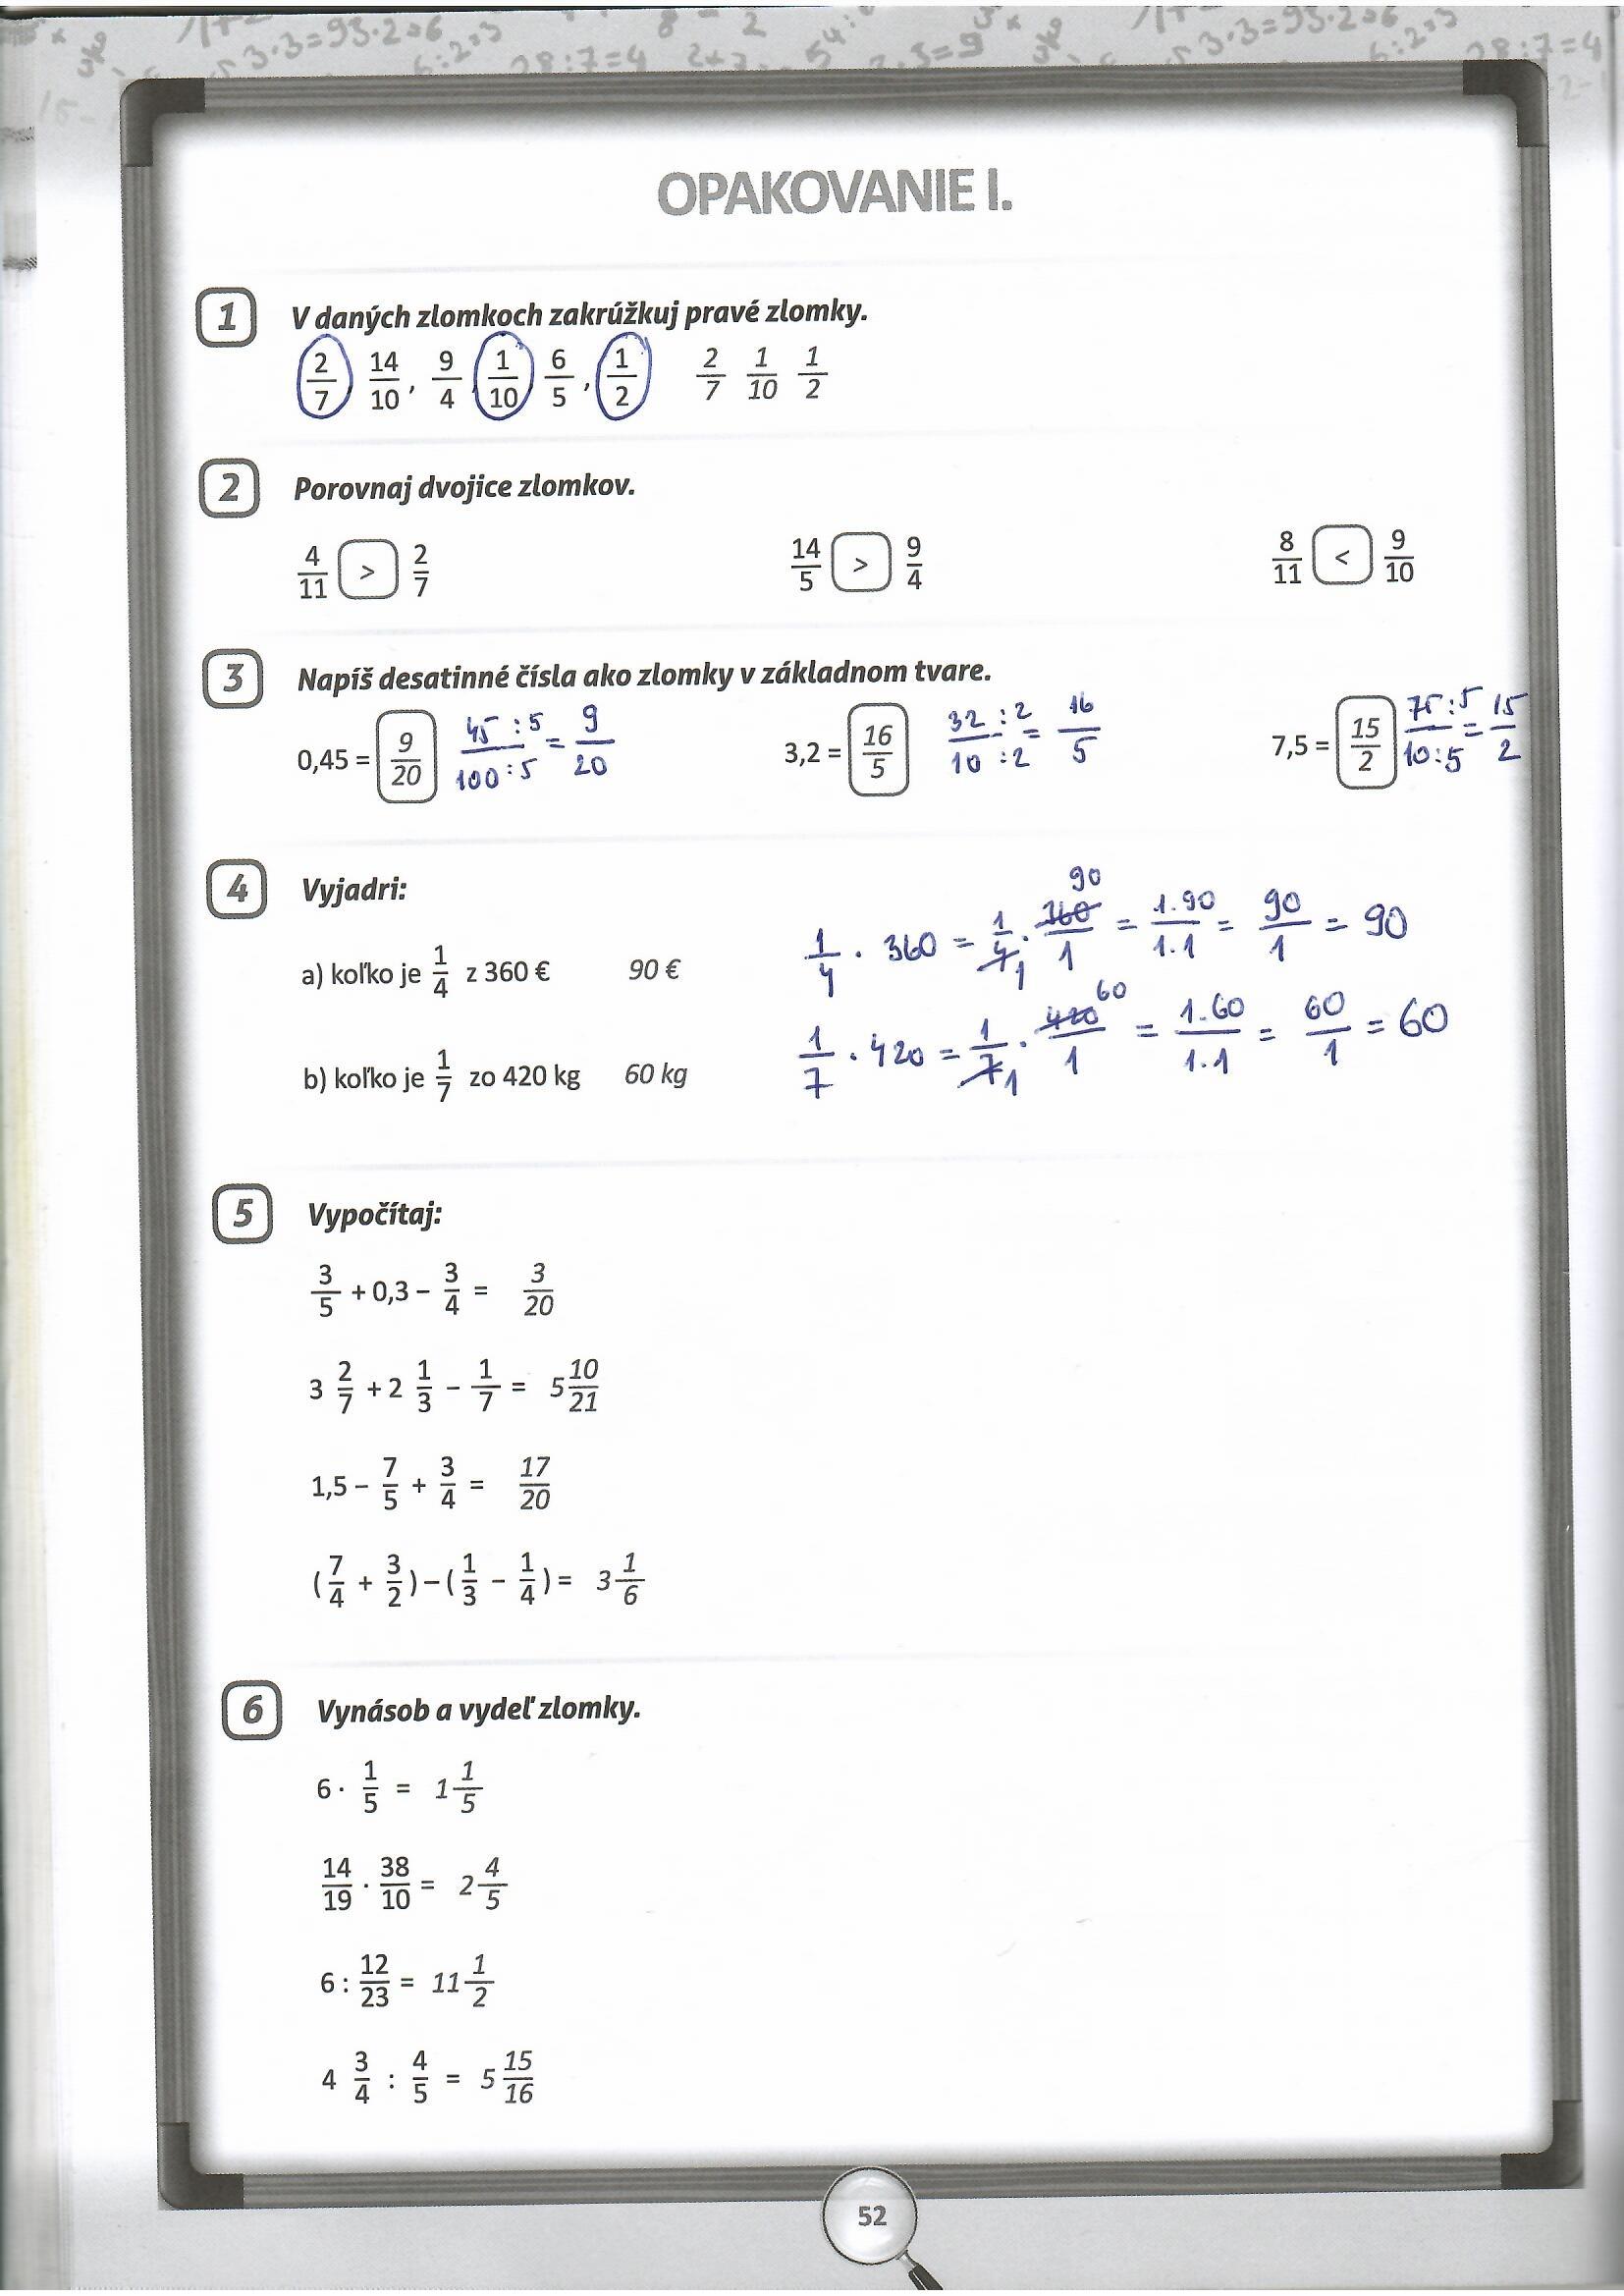 3·3=9 3·2=6 6:2=3 28:7=4 3·3=9 3·2=6 6:2=3 28:7=4
OPAKOVANIE I.
1 V daných zlomkoch zakrúžkuj pravé zlomky.
2/7 14/10, 9/4 1/10 6/5, 1/2 2/7 1/10 1/2
2 Porovnaj dvojice zlomkov.
4/11 > 2/7 14/5 > 9/4 8/11 < 9/10
3 Napíš desatinné čísla ako zlomky v základnom tvare.
0,45 = 9/20 45:5/100:5 = 9/20 3,2 = 16/5 32:2/10:2 = 16/5 7,5 = 15/2 75:5/10:5 = 15/2
4 Vyjadri:
a) koľko je 1/4 z 360 € 90 € 1/4 · 360 = 1/4 1 · 360 90/1 = 1·90/1·1 = 90/1 = 90
b) koľko je 1/7 zo 420 kg 60 kg 1/7 · 420 = 1/7 1 · 420 60/1 = 1·60/1·1 = 60/1 = 60
5 Vypočítaj:
3/5 + 0,3 – 3/4 = 3/20
3 2/7 + 2 1/3 – 1/7 = 5 10/21
1,5 – 7/5 + 3/4 = 17/20
(7/4 + 3/2) – (1/3 – 1/4) = 3 1/6
6 Vynásob a vydeľ zlomky.
6 · 1/5 = 1 1/5
14/19 · 38/10 = 2 4/5
6 : 12/23 = 11 1/2
4 3/4 : 4/5 = 5 15/16
52